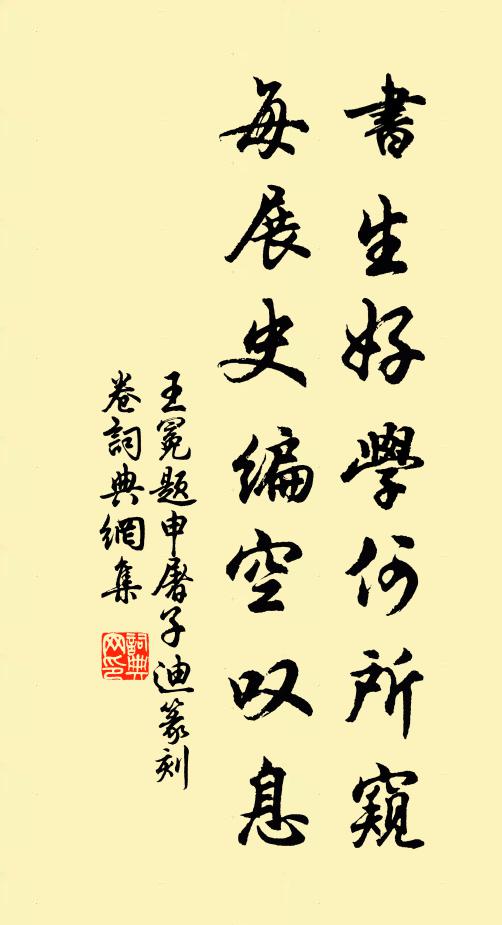 書生好學何所窺
每展史編空叹息
王冕題申屠子迪篆刻
卷詞典網集
詞典网印